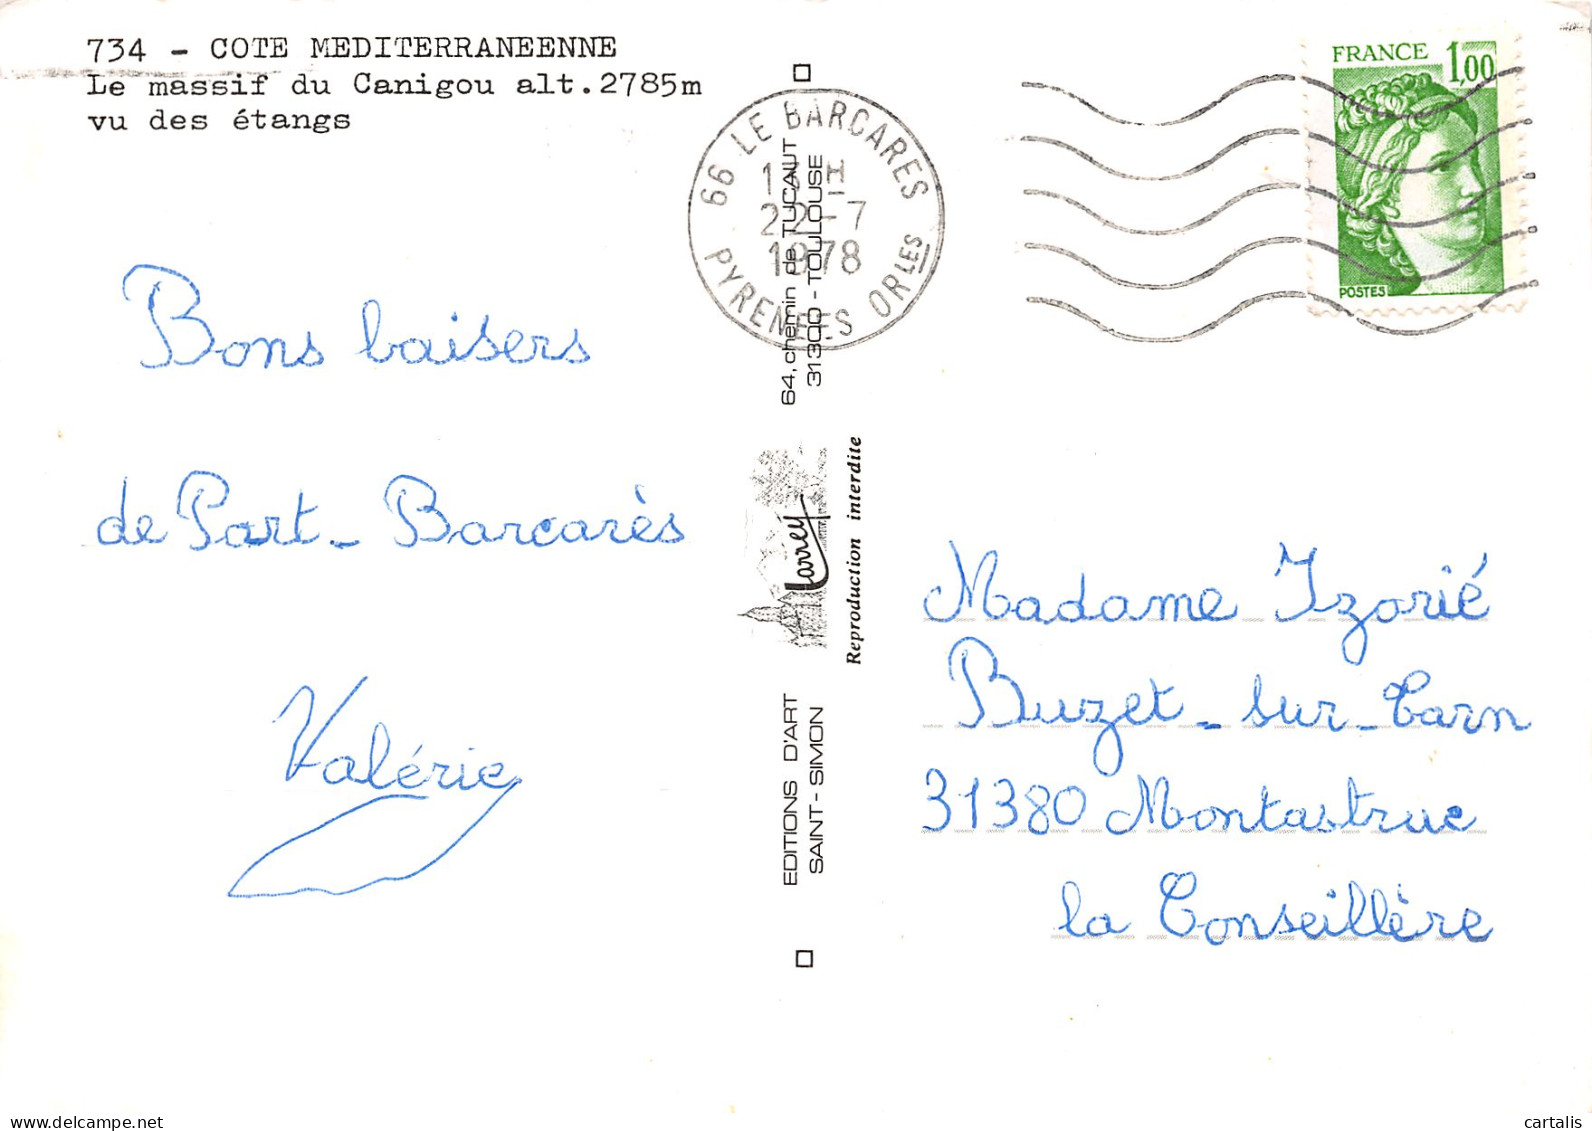 734 - COTE MEDITERRANEENNE
Le massif du Canigou alt.2785m
vu des étangs
66 LE BARCARES
22-7
1978
PYRENEES ORLES
FRANCE 1,00
POSTES
Bons baisers
de Port-Barcarès
Valérie
64, chemin de TUCAUT
31300 - TOULOUSE
Larrey
Reproduction interdite
EDITIONS D'ART
SAINT-SIMON
Madame Izorié
Buzet-sur-Tarn
31380 Montastruc
la Conseillère
cartalis